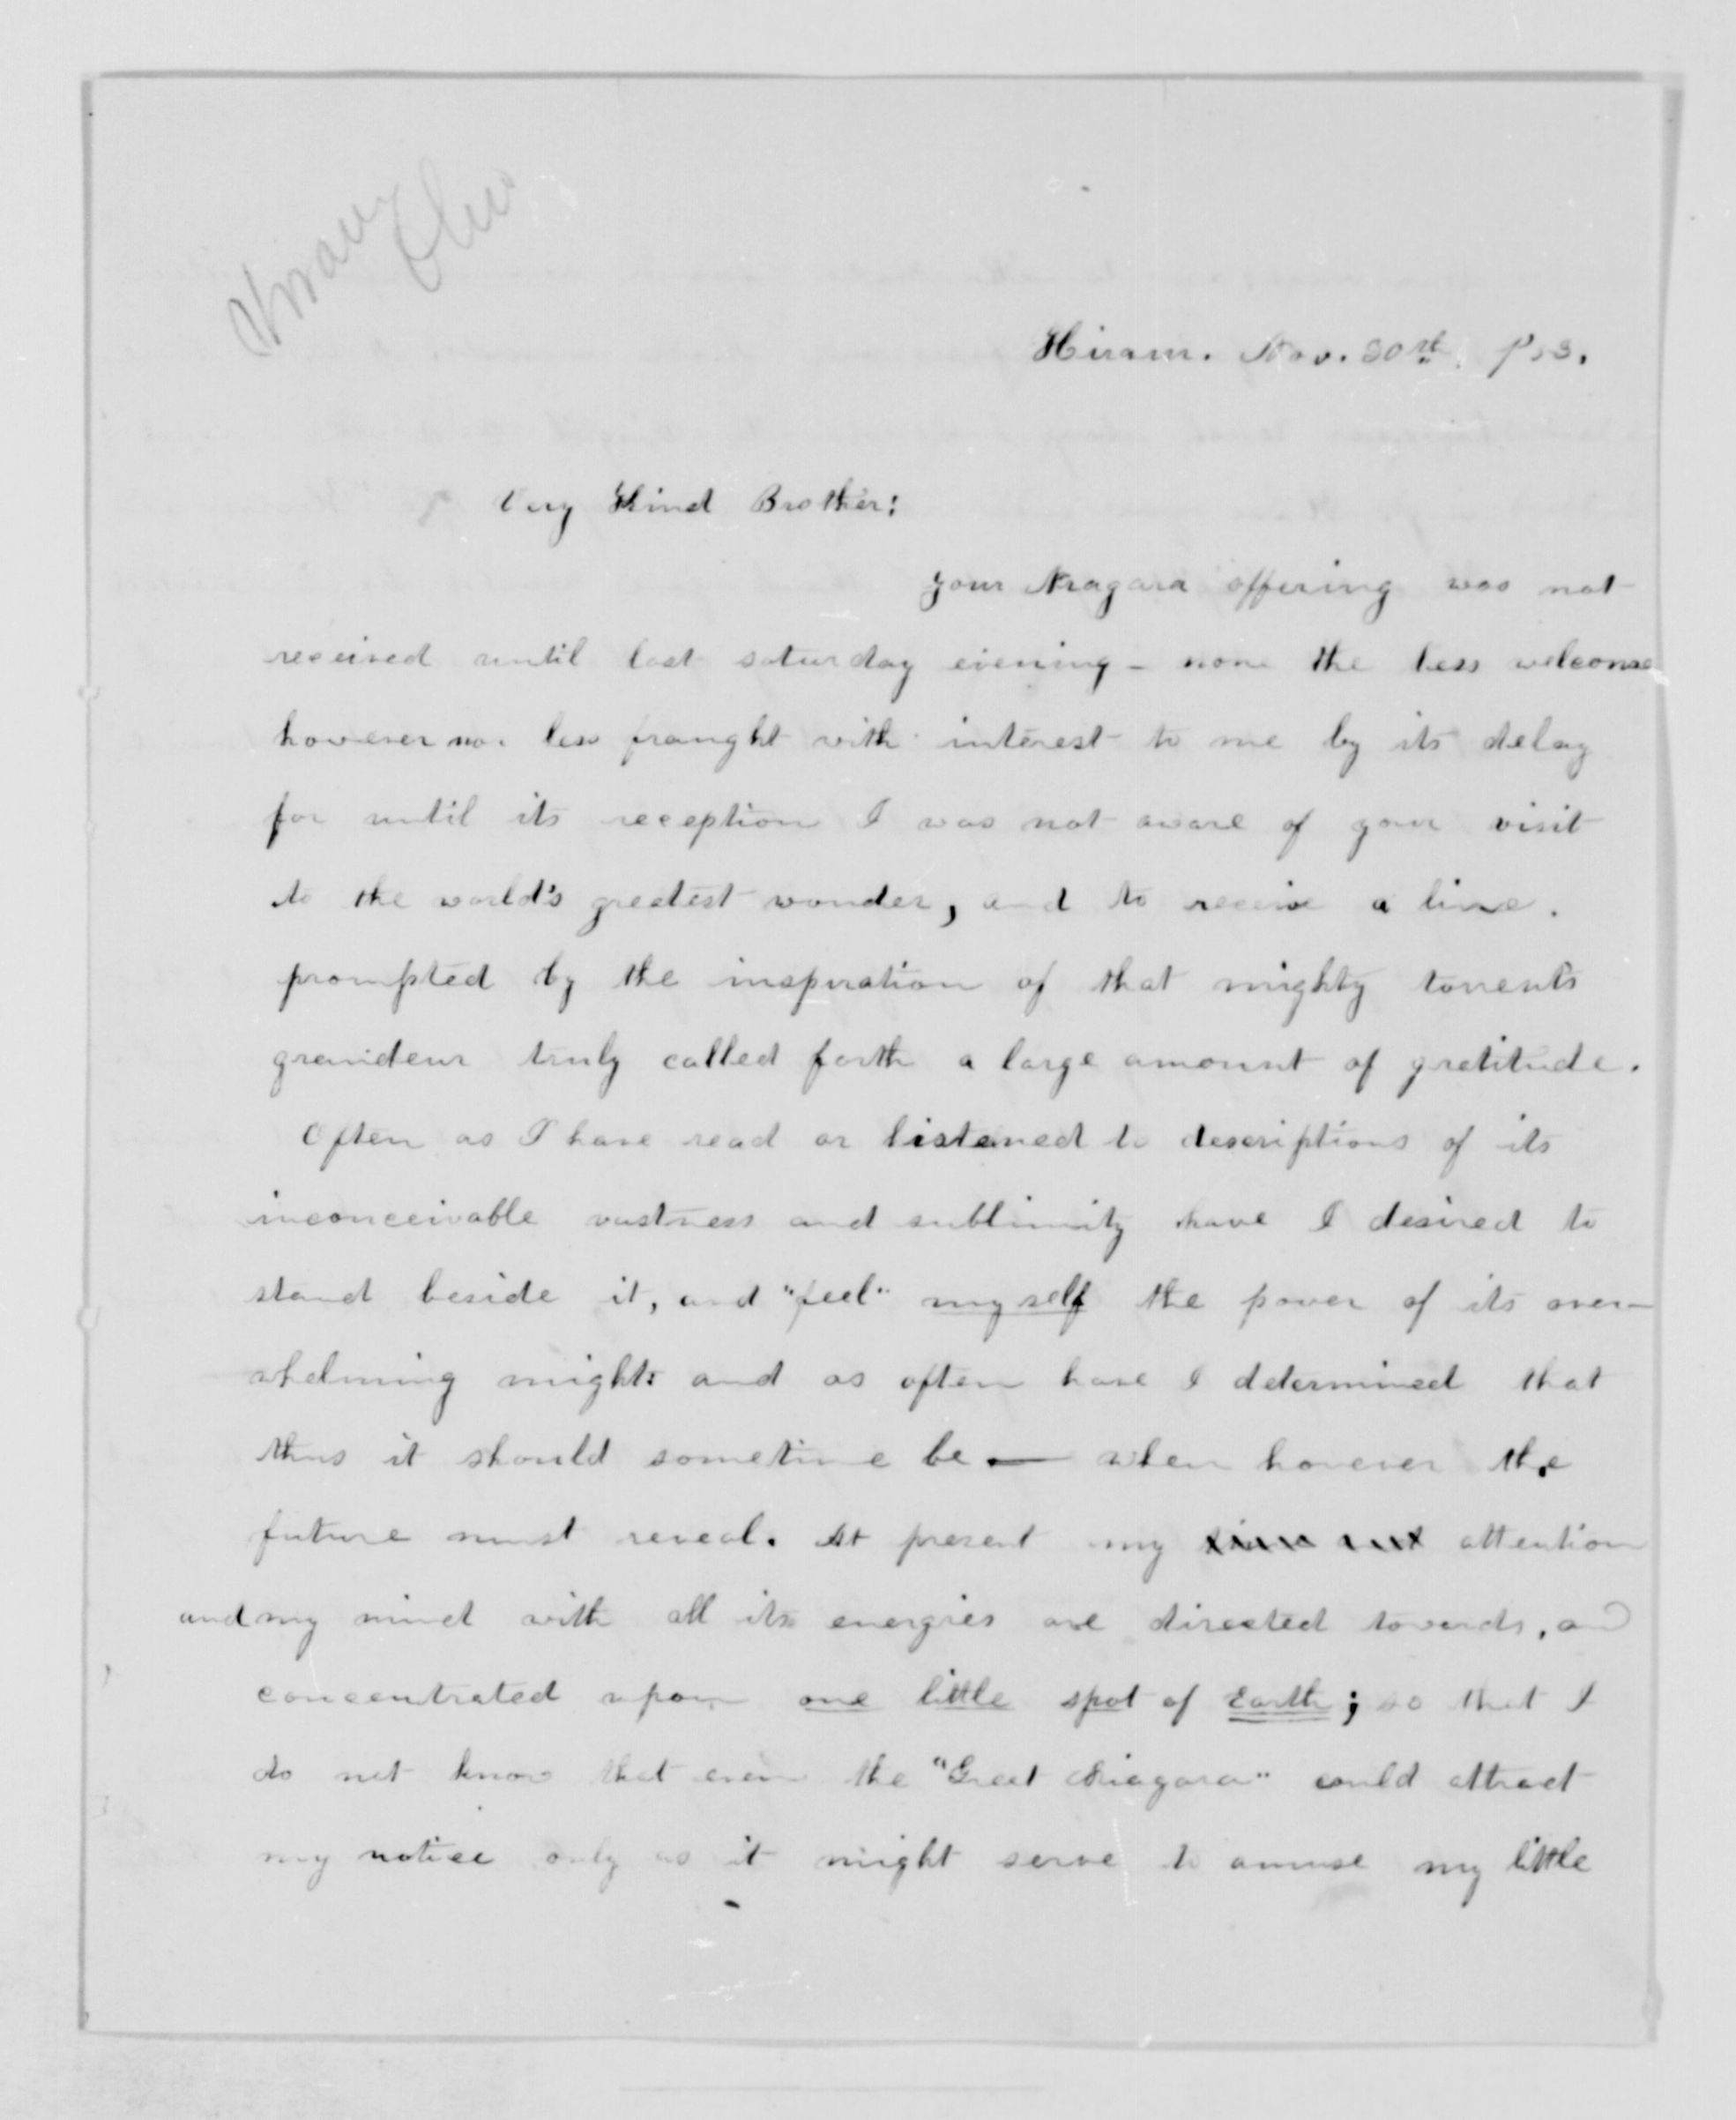 Hiram Ohio
Hiram. Nov. 30th. 1853.
Very Kind Brother:
Your Niagara offering was not
received until last saturday evening - none the less welcome
however nor less fraught with interest to me by its delay
for until its reception I was not aware of your visit
to the world's greatest wonder, and to receive a line.
prompted by the inspiration of that mighty torrents
grandeur truly called forth a large amount of gratitude.
Often as I have read or listened to descriptions of its
inconceivable vastness and sublimity have I desired to
stand beside it, and "feel" myself the power of its over-
whelming might: and as often have I determined that
thus it should sometime be — when however the
future must reveal. At present my attention
and my mind with all its energies are directed towards, and
concentrated upon one little spot of Earth; so that I
do not know that even the "Great Niagara" could attract
my notice only as it might serve to amuse my little